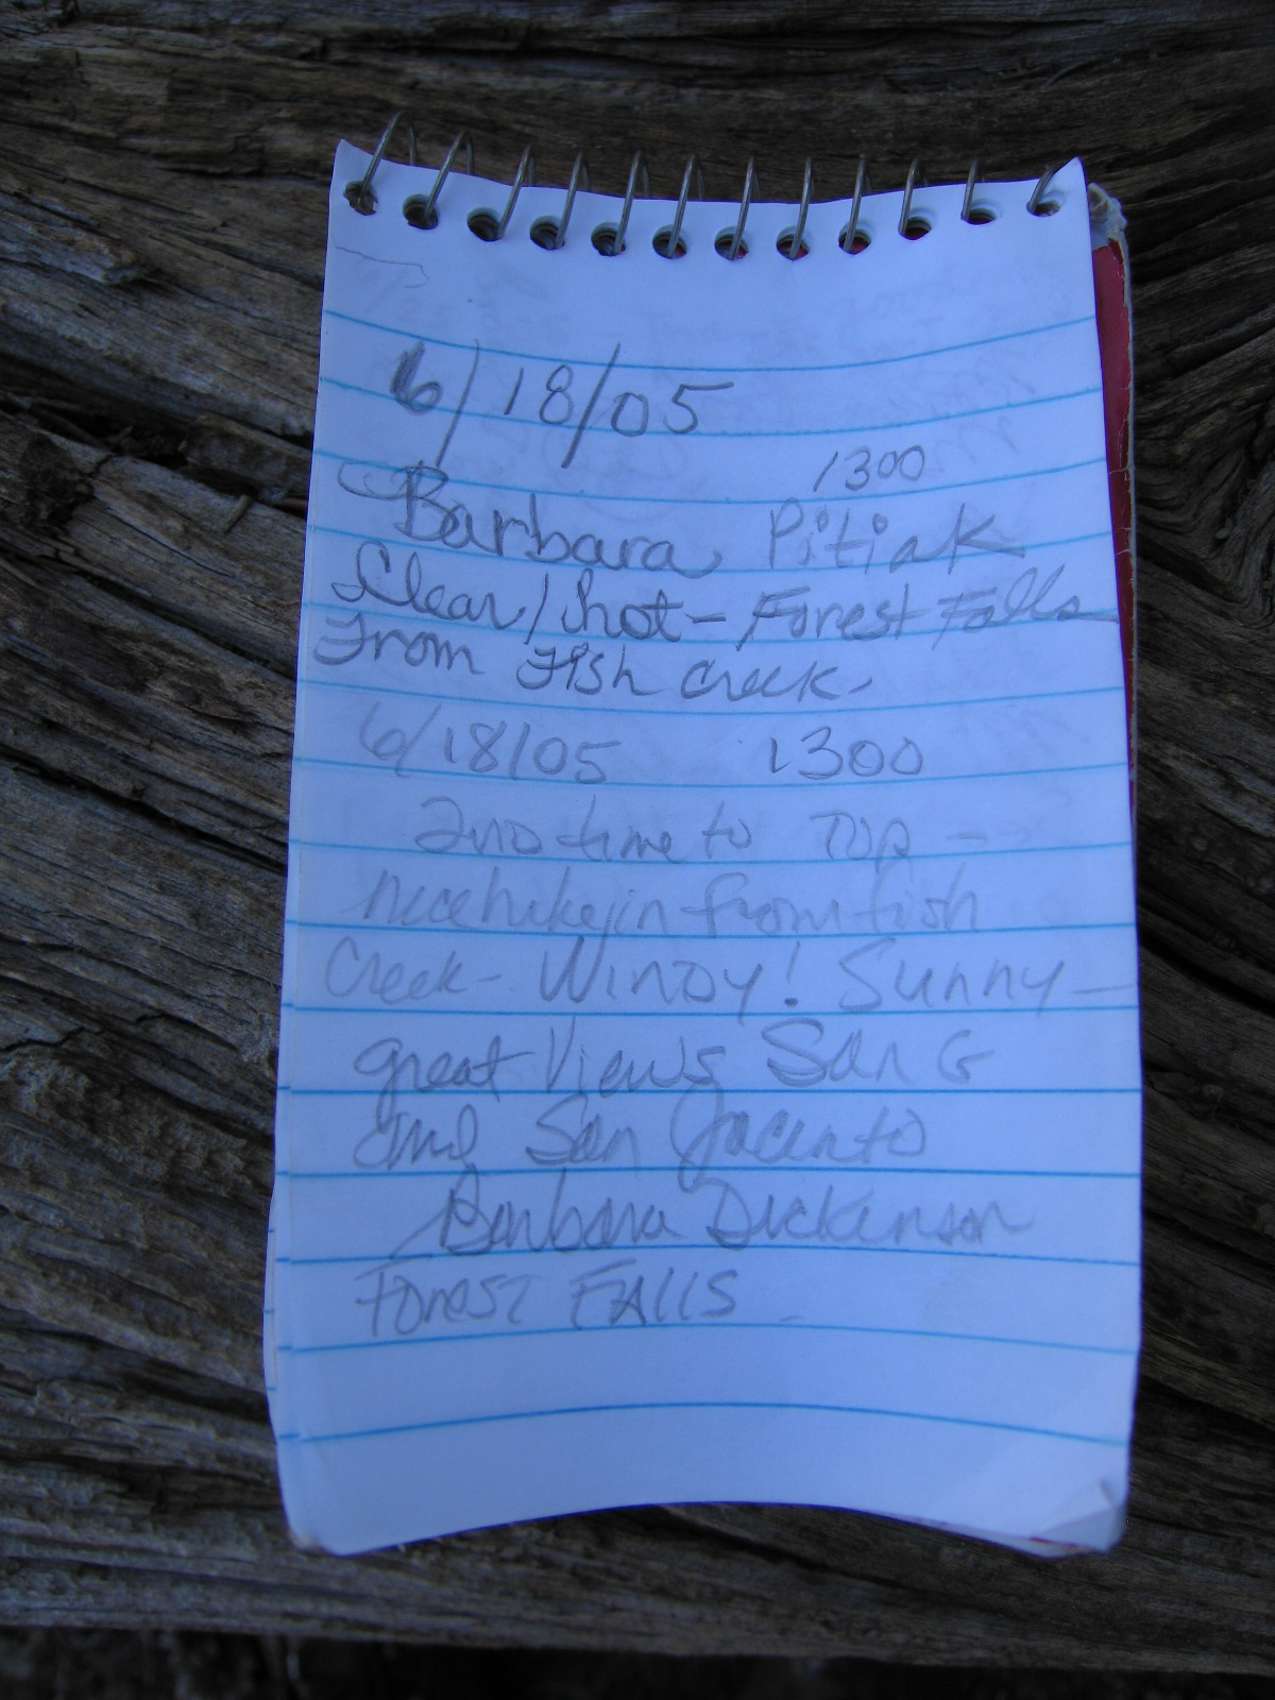 6/18/05
1300
Barbara Pitiak
Clear/hot - Forest Falls
From Fish Creek.
6/18/05 1300
2nd time to Top -
nice hike in from fish
Creek - Windy! Sunny -
great Views San G
and San Jacinto
Barbara Dickinson
Forest FAllS